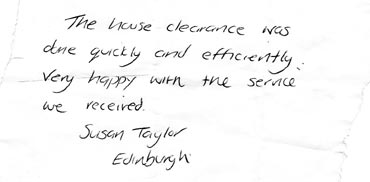 The house clearance was
done quickly and efficiently.
Very happy with the service
we received.
Susan Taylor
Edinburgh